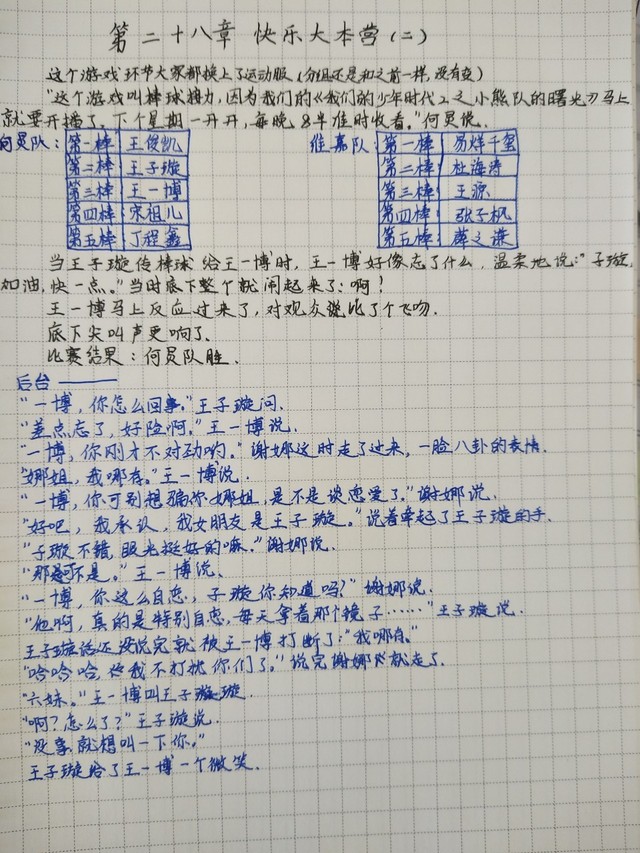 第二十八章 快乐大本营（二）
这个游戏环节大家都换上了运动服（分组还是和之前一样，没有变）
“这个游戏叫棒球接力，因为我们的《我们的少年时代2之小熊队的曙光》马上
就要开播了，下个星期一开开，每晚8半准时收看。”何炅说。
何炅队：
第一棒 王俊凯
第二棒 王子璇
第三棒 王一博
第四棒 宋祖儿
第五棒 丁程鑫
维嘉队：
第一棒 易烊千玺
第二棒 杜海涛
第三棒 王源
第四棒 张子枫
第五棒 薛之谦
当王子璇传棒球给王一博时，王一博好像忘了什么，温柔地说：“子璇，
加油，快一点。”当时底下整个就闹起来了：啊！
王一博马上反应过来了，对观众说比了个飞吻．
底下尖叫声更响了．
比赛结果：何炅队胜．
后台——
“一博，你怎么回事。”王子璇问．
“差点忘了，好险啊。”王一博说．
“一博，你刚才不对劲哟。”谢娜这时走了过来，一脸八卦的表情．
“娜姐，我哪有。”王一博说．
“一博，你可别想骗你娜姐，是不是谈恋爱了。”谢娜说．
“好吧，我承认，我女朋友是王子璇。”说着牵起了王子璇的手．
“子璇不错，眼光挺好的嘛。”谢娜说．
“那可不是。”王一博说．
“一博，你这么自恋，子璇你知道吗？”谢娜说．
“他啊，真的是特别自恋，每天拿着那个镜子……”王子璇说．
王子璇话还没说完就被王一博打断了：“我哪有。”
“哈哈哈，我不打扰你们了。”说完谢娜就走了．
“六妹。”王一博叫王子璇．
“啊？怎么了？”王子璇说．
“没事就想叫一下你。”
王子璇给了王一博一个微笑．